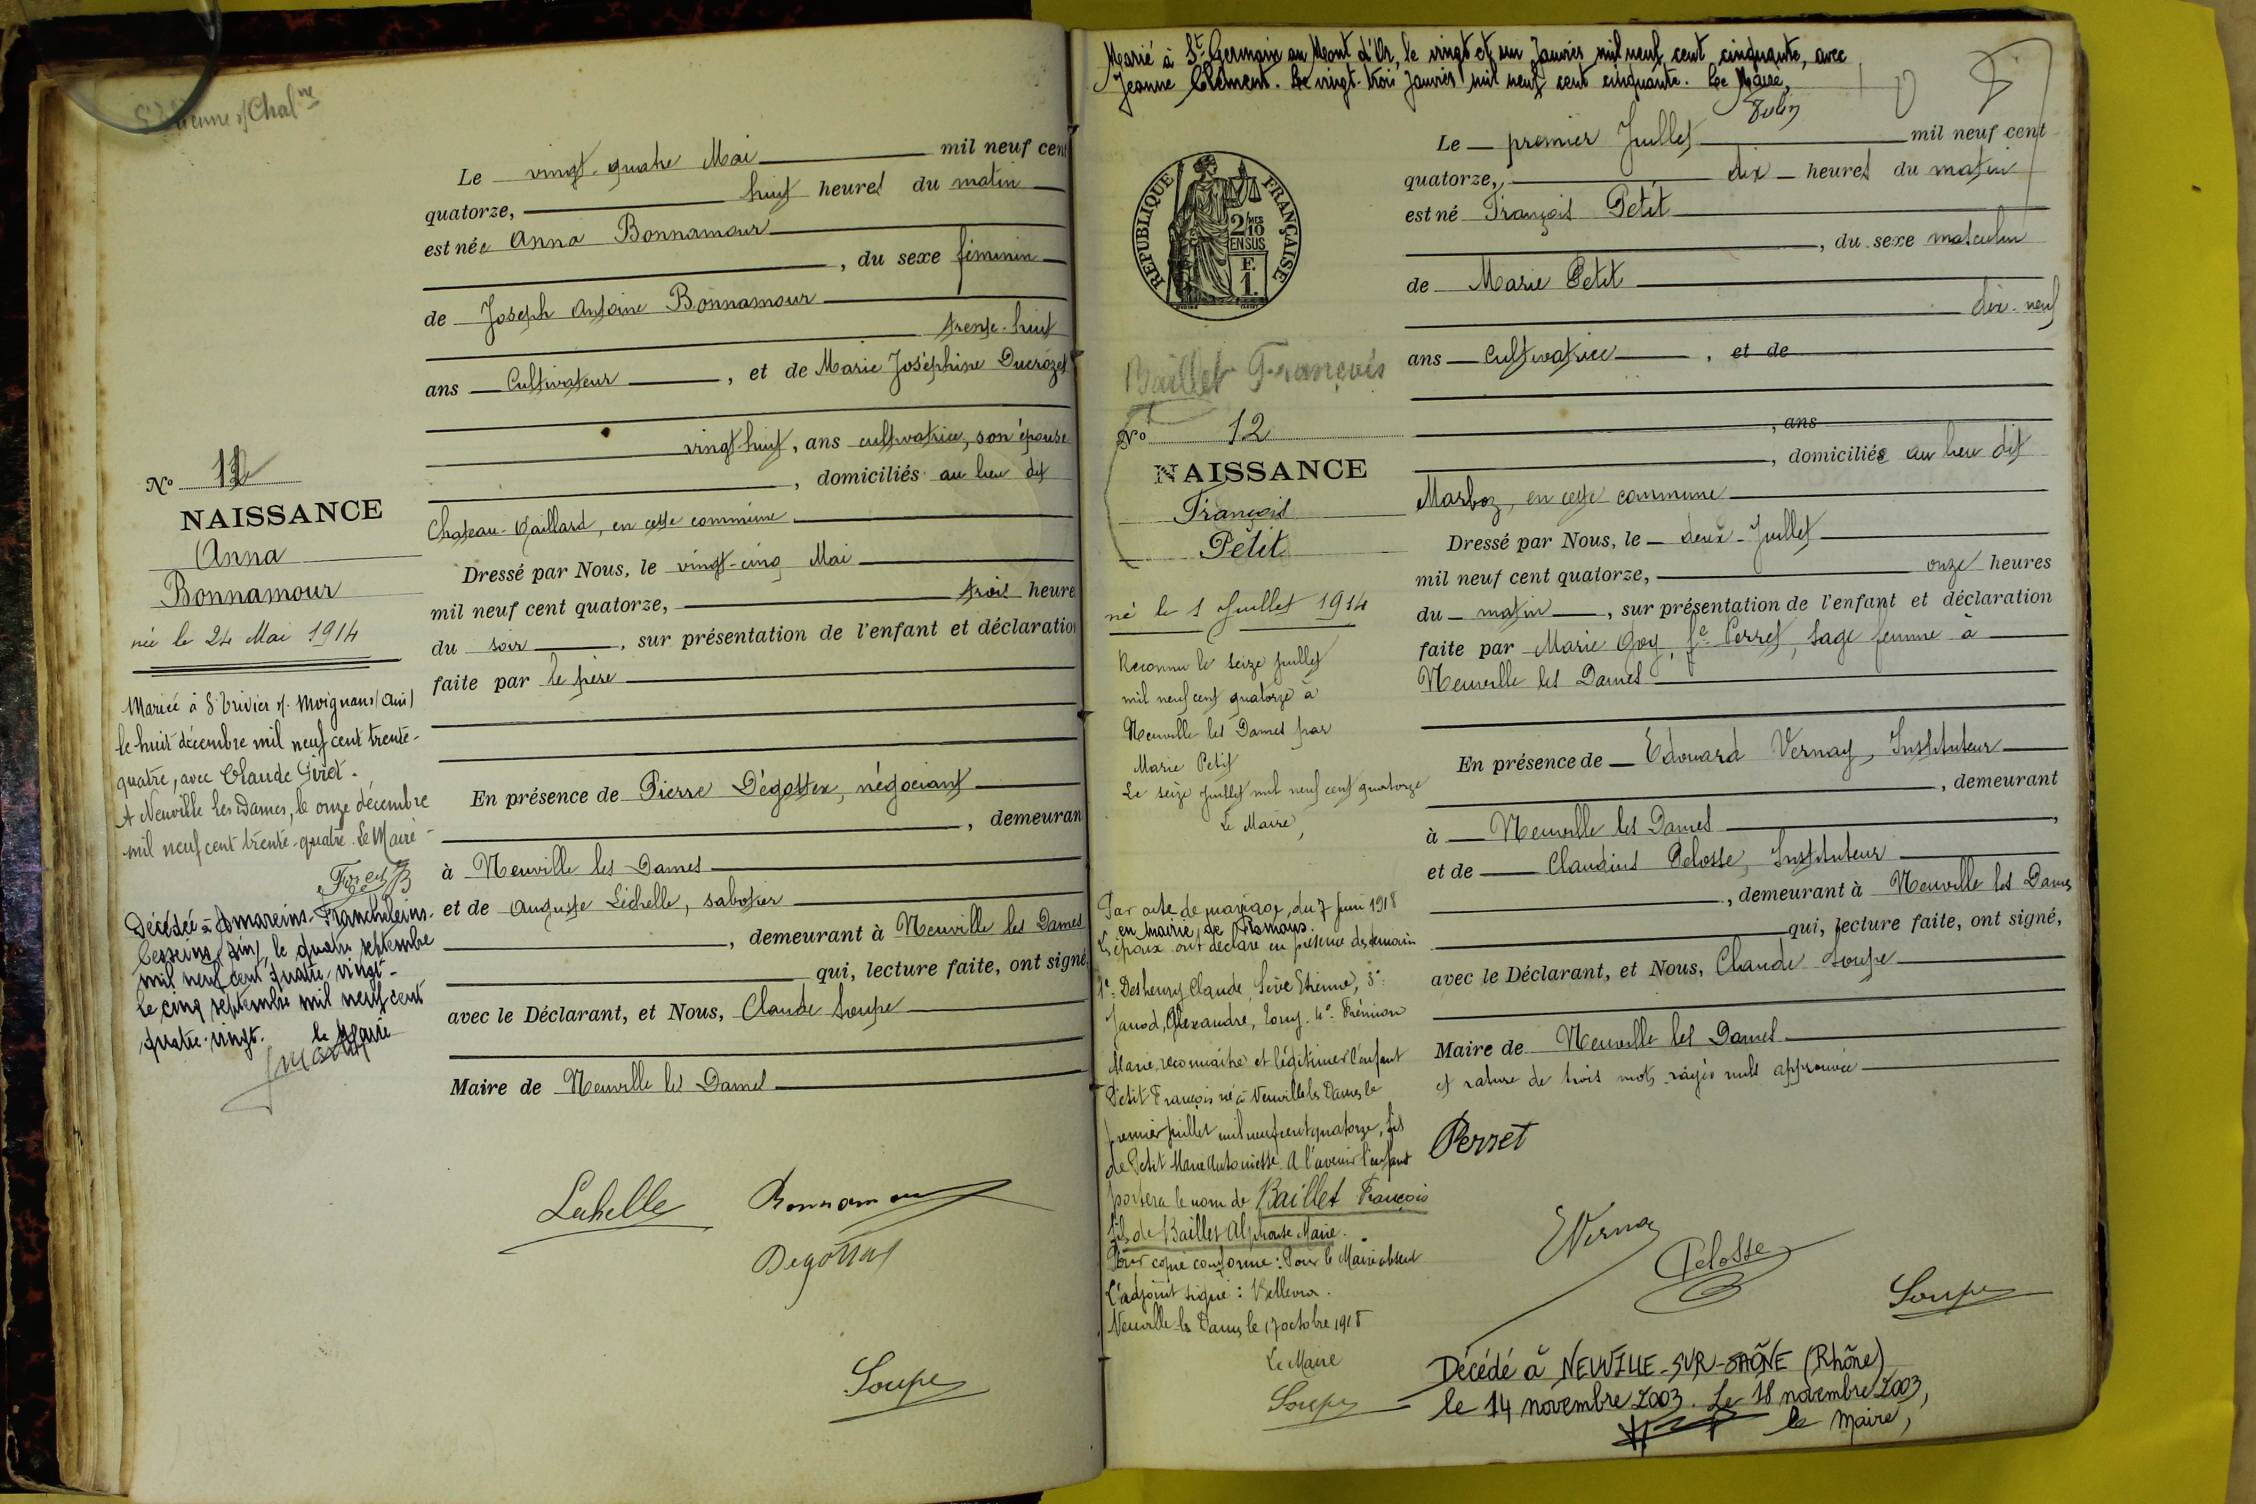 St Etienne s/ Chal ne
Le vingt-quatre Mai mil neuf cent
quatorze, huit heures du matin
est née Anna Bonnamour
, du sexe féminin
de Joseph Antoine Bonnamour
trente-huit
ans Cultivateur , et de Marie Joséphine Ducrozet
vingt-huit, ans cultivatrice, son épouse
, domiciliés au lieu dit
Chateau-Gaillard, en cette commune
Dressé par Nous, le vingt-cinq Mai
mil neuf cent quatorze, trois heure
du soir , sur présentation de l'enfant et déclaration
faite par le père
En présence de Pierre Dégottex, négociant
, demeuran
à Neuville les Dames
et de Auguste Léchelle, sabotier
, demeurant à Neuville les Dames
qui, lecture faite, ont signé
avec le Déclarant, et Nous, Claude Soupe
Maire de Neuville les Dames
Bonnamour
Soupe
No
NAISSANCE
Anna
Bonnamour
née le 24 Mai 1914
Mariée à St Trivier s/ Moignans (Ain)
le huit décembre mil neuf cent trente-
quatre, avec Claude
A Neuville les Dames, le onze décembre
mil neuf cent trente-quatre. Le Maire
Décédée à Amareins-Francheleins-
Cesseins, Ain, le quatre septembre
mil neuf cent quatre-vingt-
le cinq septembre mil neuf cent
quatre-vingt. le Maire
Marié à St Germain au Mont d'Or, le vingt et un Janvier mil neuf cent cinquante, avec
Jeanne Clément. Le vingt-trois Janvier mil neuf cent cinquante. Le Maire,
RÉPUBLIQUE FRANÇAISE
2/10 MES
EN SUS
F.
1.
Baillet François
No 12
NAISSANCE
François
Petit
né le 1 Juillet 1914
Reconnu le seize Juillet
mil neuf cent quatorze à
Neuville les Dames par
Marie Petit
Le seize Juillet mil neuf cent quatorze
Le Maire,
Par acte de mariage, du 7 Juin 1918
en mairie de Romans.
Les époux ont déclaré en présence des témoins
1° Claude, Sève Etienne, 3°
Janod, Alexandre, Tony. 4°
Marie, reconnaître et légitimer l'enfant
Petit François né à Neuville les Dames le
premier juillet mil neuf cent quatorze, fils
de Petit Marie Antoinette. A l'avenir l'enfant
portera le nom de Baillet François
fils de Baillet Alphonse Marie.
Pour copie conforme: Pour le Maire absent
L'adjoint signé:
Neuville les Dames le 17 octobre 1918
Le Maire
Soupe
Le premier Juillet mil neuf cent
quatorze, dix heures du matin
est né François Petit
, du sexe masculin
de Marie Petit
dix-neuf
ans cultivatrice , et de
, ans
, domiciliée au lieu dit
Marboz, en cette commune
Dressé par Nous, le deux Juillet
mil neuf cent quatorze, onze heures
du matin , sur présentation de l'enfant et déclaration
faite par Marie Goy, fe Perret, sage femme à
Neuville les Dames
En présence de Edouard Vernay, Instituteur
, demeurant
à Neuville les Dames ,
et de Claudius Pelosse, Instituteur
, demeurant à Neuville les Dames
qui, lecture faite, ont signé,
avec le Déclarant, et Nous, Claude Soupe
Maire de Neuville les Dames
et rature de trois mots rayés nuls approuvée
Perret
EVernay
Pelosse
Soupe
Décédé à NEUVILLE-SUR-SAÔNE (Rhône)
le 14 novembre 2003. Le 18 novembre 2003,
le Maire,